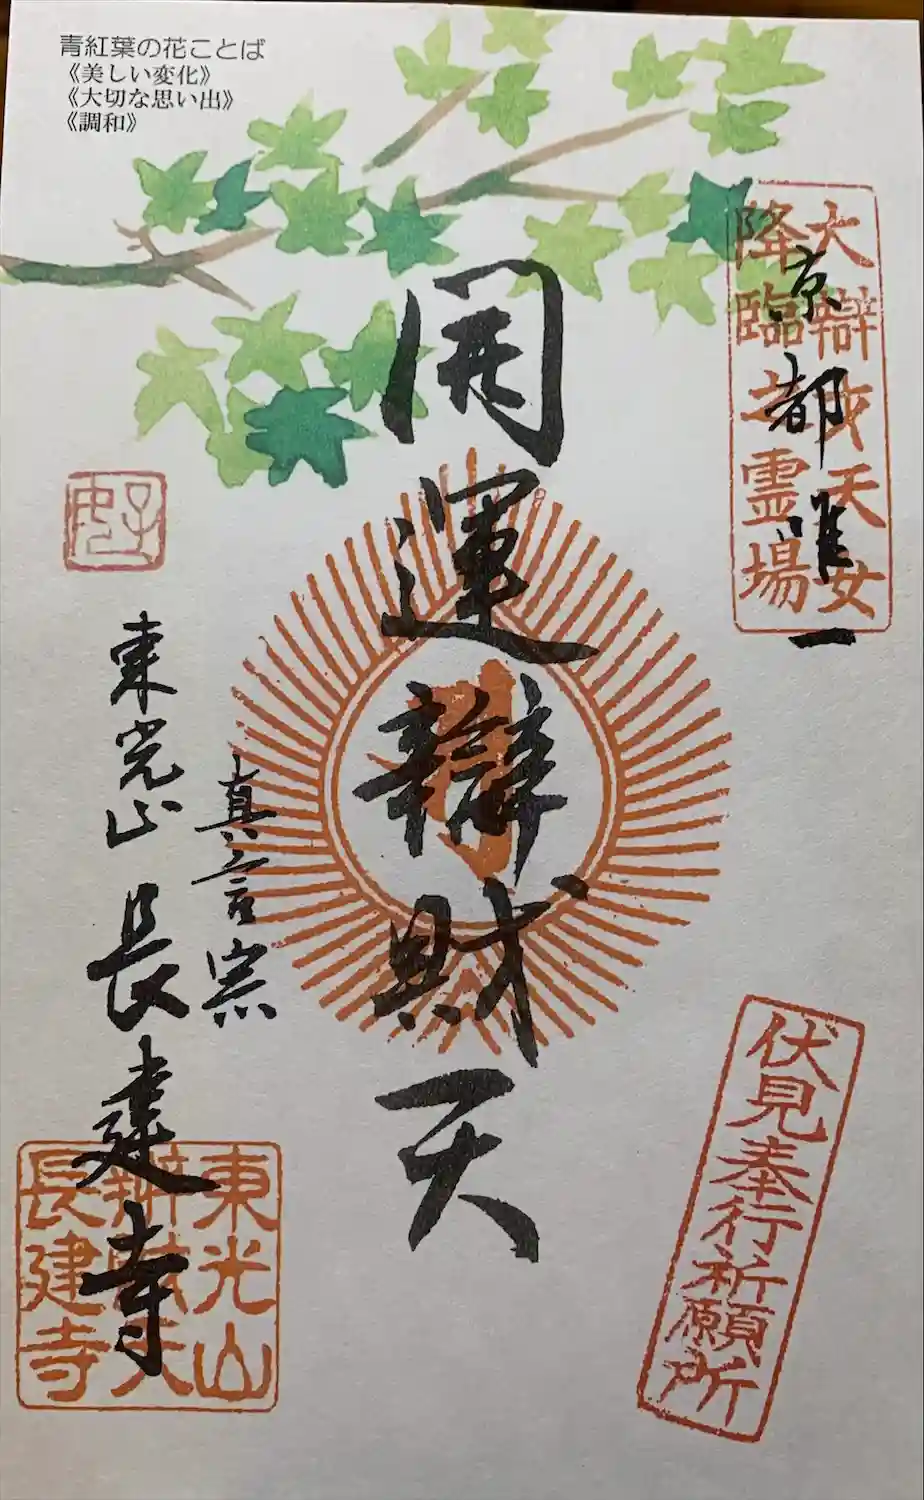 青紅葉の花ことば
《美しい変化》
《大切な思い出》
《調和》
大辯才天女
降臨之霊場
京都唯一
開運辯財天
真言宗
東光山 長建寺
伏見奉行祈願所
東光山
辨財天
長建寺